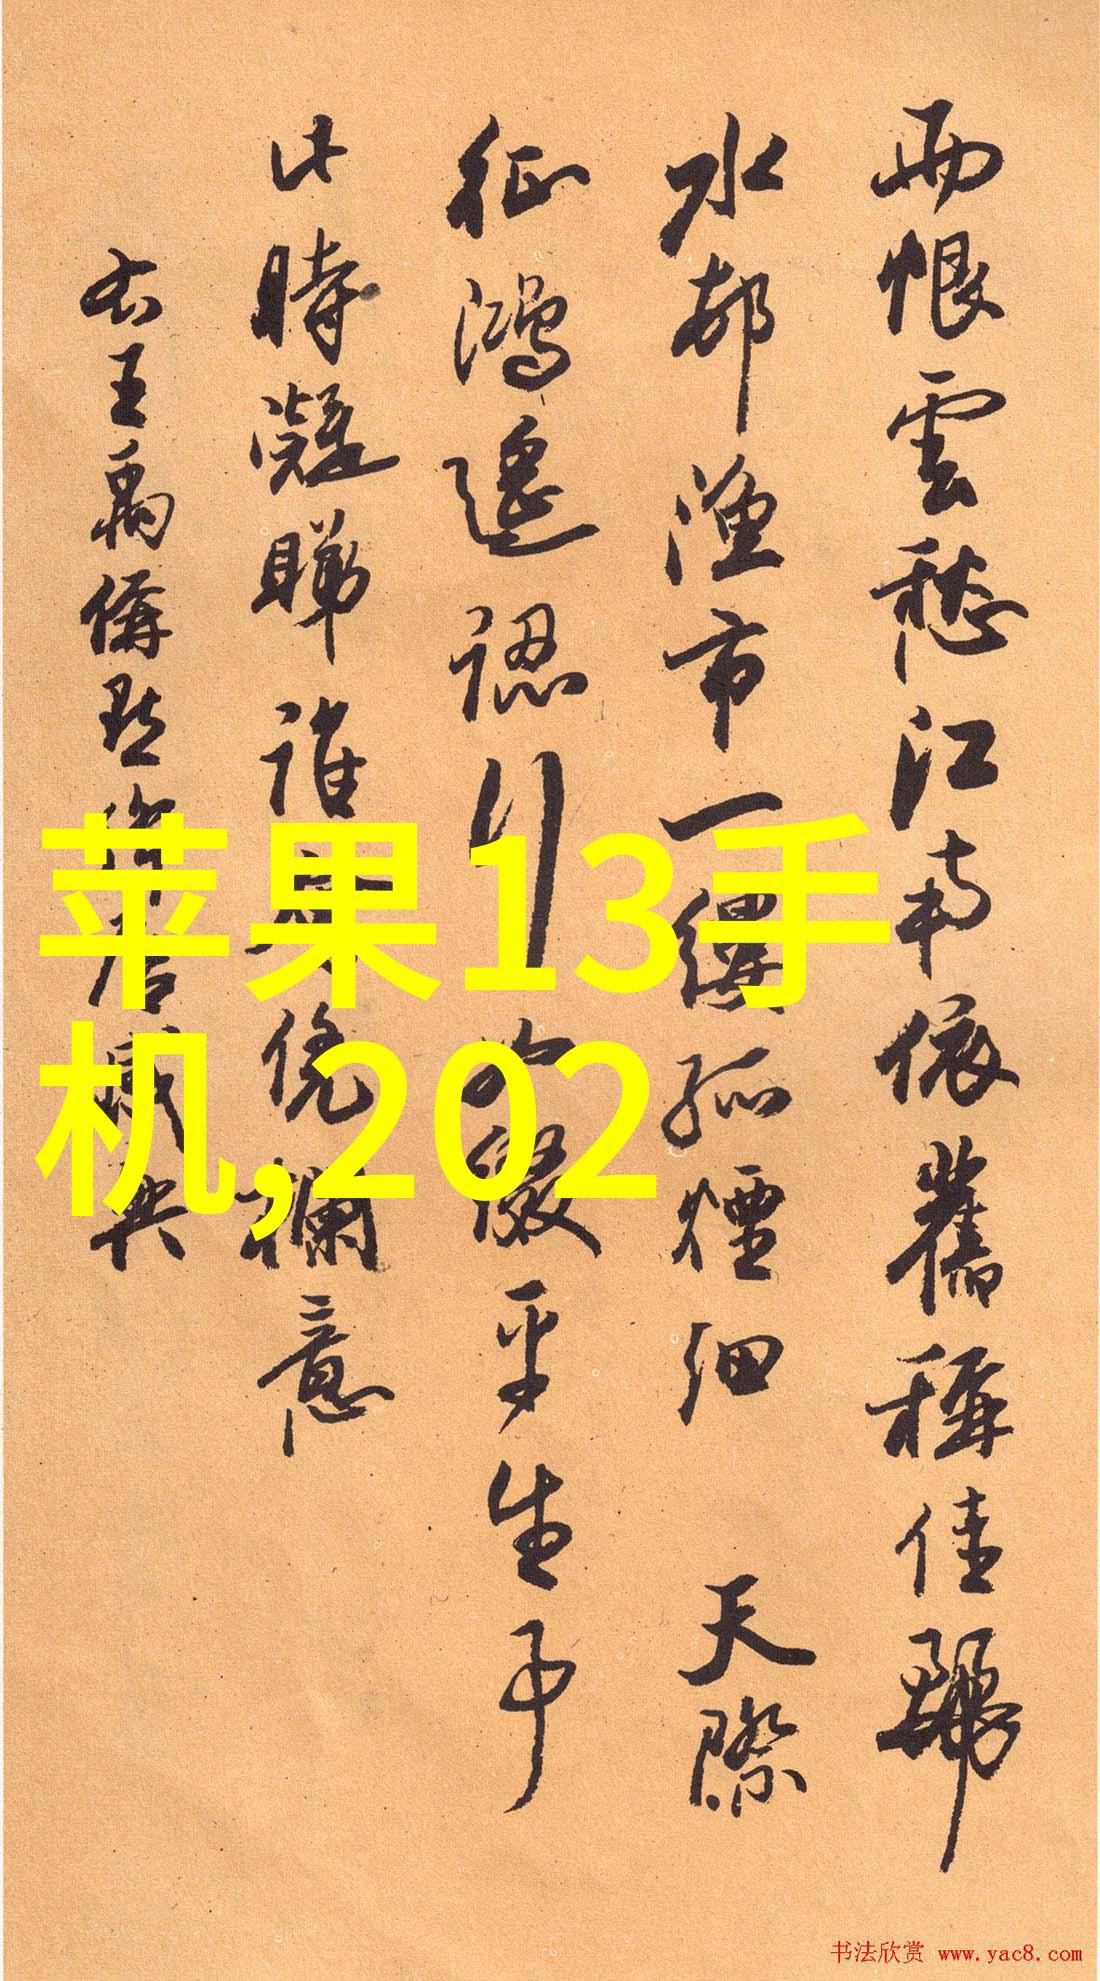 雨恨雲愁江南依舊稱佳麗
水邨漁市一縷孤煙細 天際
征鴻遙認行如綴平生事
此時凝睇誰會凭欄意
右王禹偁點絳唇感興
苹果13手
机,202
书法欣赏 www.yac8.com